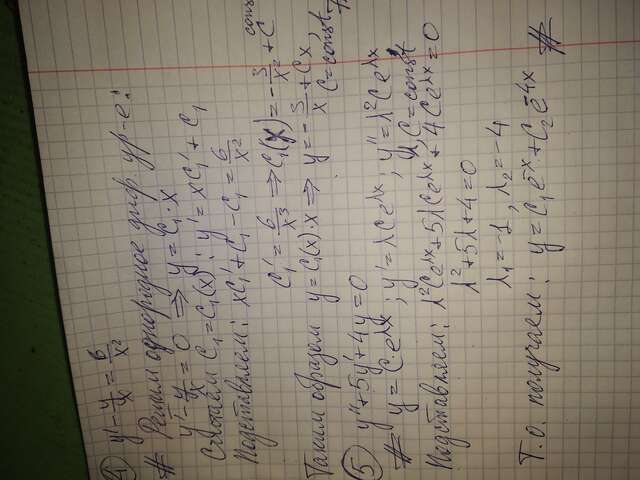 4 y' - y/x = 6/x²
# Решим однородное диф. ур-е:
y' - y/x = 0 ⇒ y = C₁·x
Считаем C₁ = C₁(x): y' = xC₁' + C₁
Подставляем: xC₁' + C₁ - C₁ = 6/x²
C₁' = 6/x³ ⇒ C₁(x) = -3/x² + C const
Таким образом y = C₁(x)·x ⇒ y = -3/x + Cx,
C = const #
5 y'' + 5y' + 4y = 0
# y = C·e^λx ; y' = λCe^λx ; y'' = λ²Ce^λx
λ, C = const
Подставляем: λ²Ce^λx + 5λCe^λx + 4Ce^λx = 0
λ² + 5λ + 4 = 0
λ₁ = -1, λ₂ = -4
Т.о. получаем: y = C₁e^-x + C₂e^-4x #